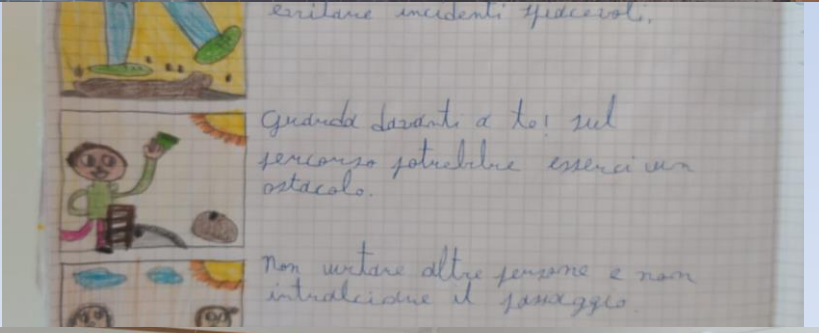 evitare incidenti spiacevoli.
Guarda davanti a te! sul
percorso potrebbe esserci un
ostacolo.
Non urtare altre persone e non
intralciare il passaggio